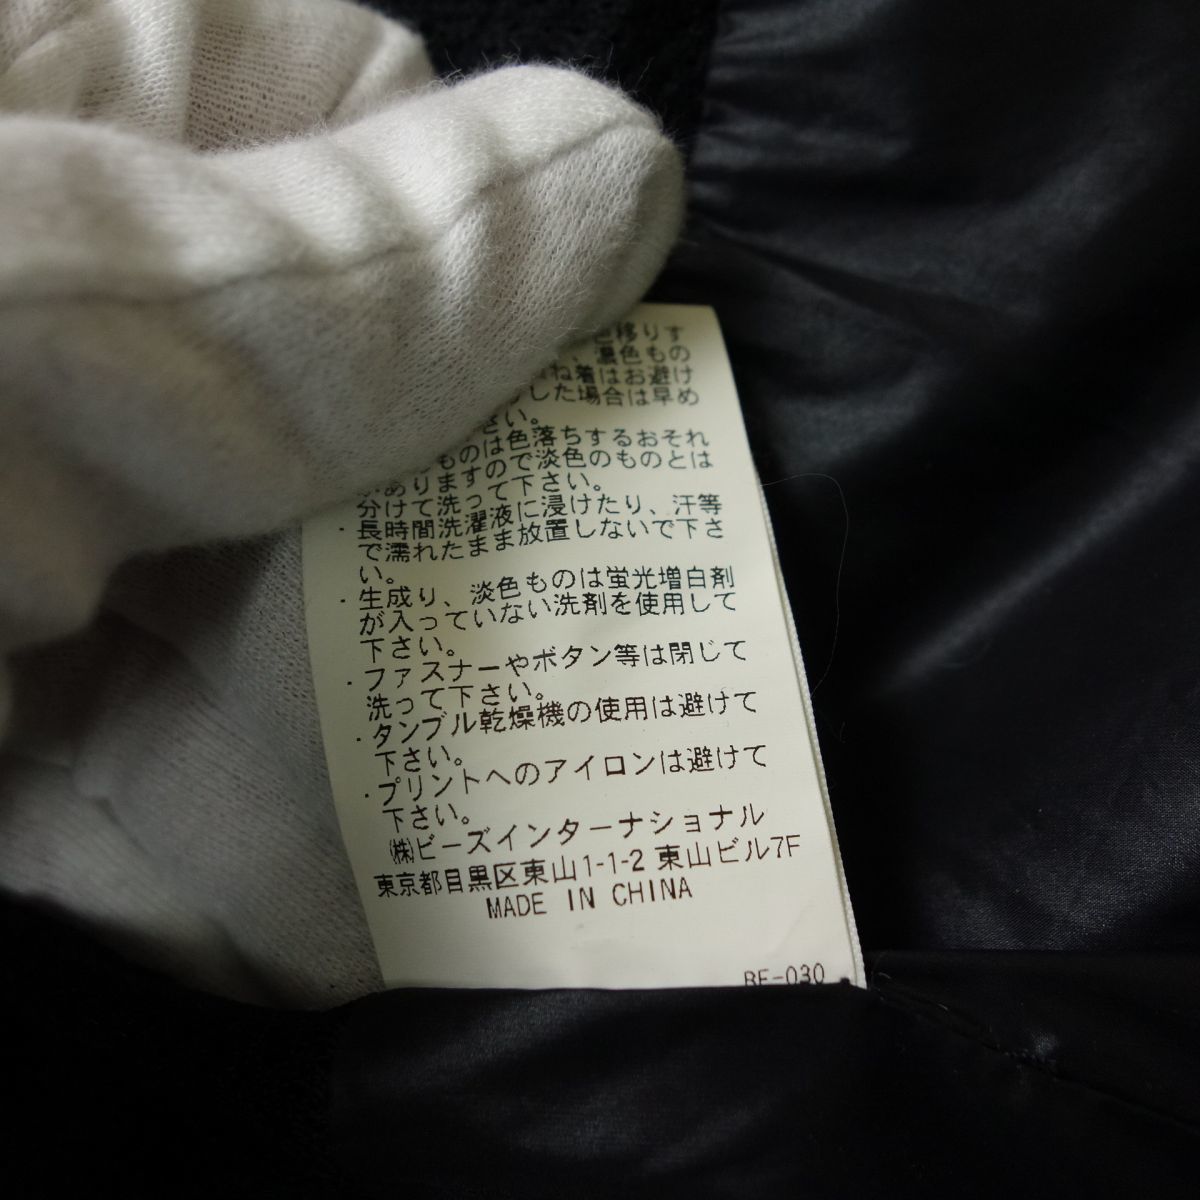 移りす
、濃色もの
ね着はお避け
した場合は早め
さい。
ものは色落ちするおそれ
がありますので淡色のものとは
分けて洗って下さい。
・長時間洗濯液に浸けたり、汗等
で濡れたまま放置しないで下さ
い。
・生成り、淡色ものは蛍光増白剤
が入っていない洗剤を使用して
下さい。
・ファスナーやボタン等は閉じて
洗って下さい。
・タンブル乾燥機の使用は避けて
下さい。
・プリントへのアイロンは避けて
下さい。
㈱ビーズインターナショナル
東京都目黒区東山1-1-2 東山ビル7F
MADE IN CHINA
BF-030